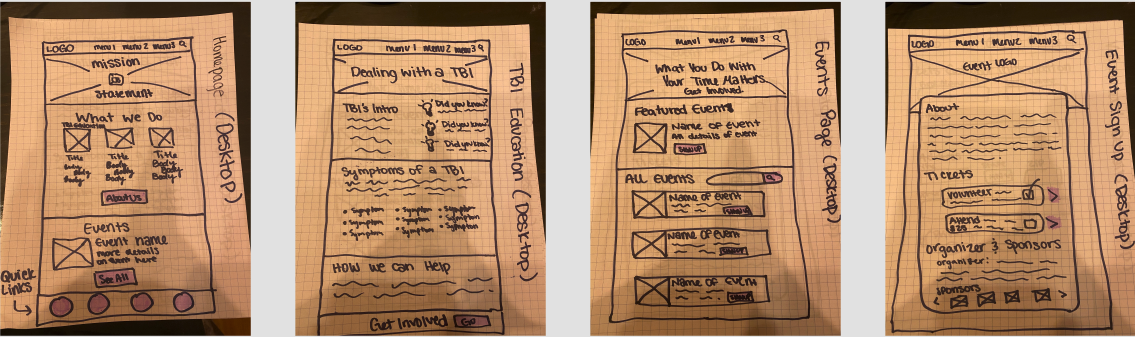 LOGO menu 1 menu 2 menu 3
mission
statement
What We Do
TBI Education
Title Title Title
Body Body Body
Body Body Body
Body Body Body
About Us
Events
Event name
more details
on event here
See All
Quick
Links
Homepage (Desktop)
LOGO menu 1 menu 2 menu 3
Dealing with a TBI
TBI's Intro
Did you know?
Did you know?
Did you know?
Symptoms of a TBI
• Symptom • Symptom • Symptom
• Symptom • Symptom • Symptom
• Symptom • Symptom • Symptom
How we can Help
Get Involved Go
TBI Education (Desktop)
LOGO menu 1 menu 2 menu 3
What You Do With
Your Time Matters
Get Involved
Featured Events
Name of Event
details of event
Sign up
All Events
Name of Event
Sign up
Name of Event
Sign up
Name of Event
Sign up
Events Page (Desktop)
LOGO menu 1 menu 2 menu 3
Event Logo
About
Tickets
Volunteer
Attend
$25
Organizer & Sponsors
organizer:
sponsors
Event Sign Up (Desktop)